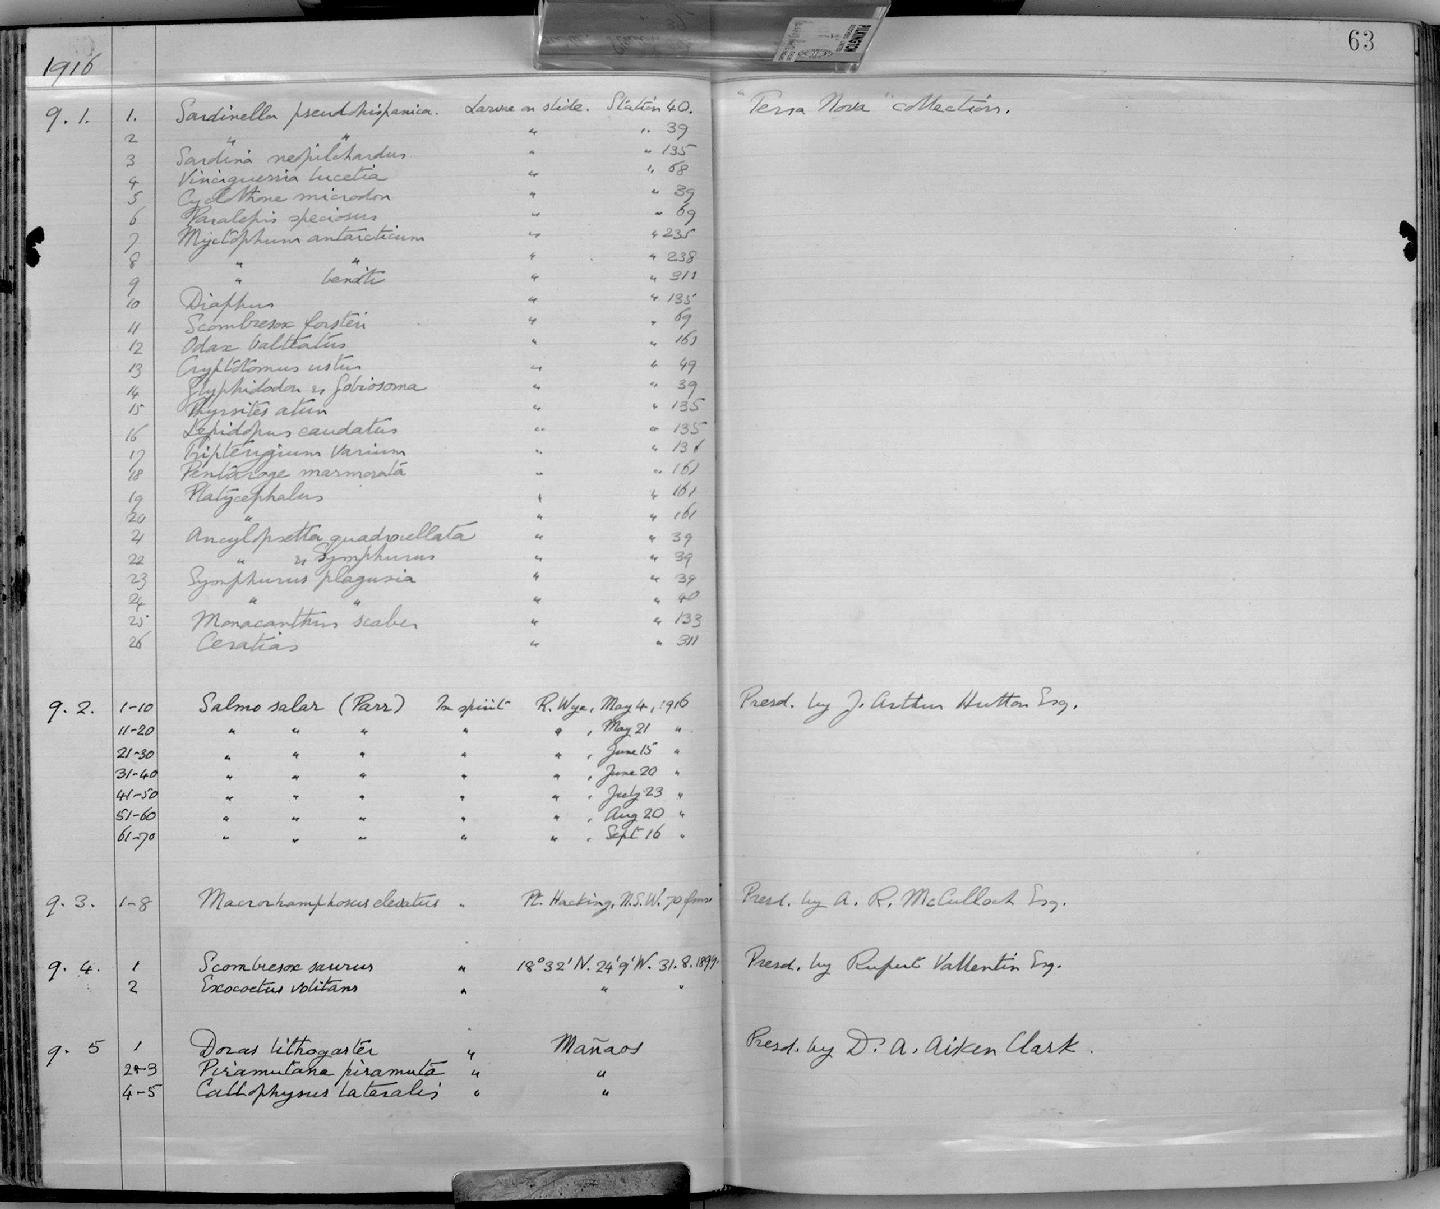 63
1916
9.1. 1. Sardinella pseudohispanica. Larvae on slide. Station 40. "Terra Nova" collection.
2 " " " " 39
3 Sardina neopilchardus " " 135
4 Vinciguerria lucetia " " 68
5 Cyclothone microdon " " 39
6 Paralepis speciosus " " 69
7 Myctophum antarcticum " " 235
8 " " " " 238
9 " benoiti " " 311
10 Diaphus " " 135
11 Scombresox forsteri " " 69
12 Odax balteatus " " 161
13 Cryptotomus ustus " " 49
14 Glyphidodon & Gobiosoma " " 39
15 Thyrsites atun " " 135
16 Lepidopus caudatus " " 135
17 Tripterygium varium " "
18 Pentaroge marmorata " " 161
19 Platycephalus " " 161
20 " " " 161
21 Ancylopsetta quadrocellata " " 39
22 " & Symphurus " " 39
23 Symphurus plagusia " " 39
24 " " " " 40
25 Monacanthus scaber " " 133
26 Ceratias " " 311
9.2. 1-10 Salmo salar (Parr) In spirit R. Wye, May 4, 1916 Presd. by J. Arthur Hutton Esq.
11-20 " " " " " , May 21 "
21-30 " " " " " , June 15 "
31-40 " " " " " , June 20 "
41-50 " " " " " , July 23 "
51-60 " " " " " , Aug 20 "
61-70 " " " " " , Sept 16 "
9.3. 1-8 Macrorhamphosus elevatus " Pt. Hacking, N.S.W. 70 fms Presd. by A. R. McCulloch Esq.
9.4. 1 Scombresox saurus " 18°32'N. 24°9'W. 31.8.1899. Presd. by Rupert Vallentin Esq.
2 Exocoetus volitans " " "
9.5 1 Doras lithogaster " Mañaos Presd. by Dr. A. Aiken Clark.
2-3 Piramutana piramuta " "
4-5 Callophysus lateralis " "